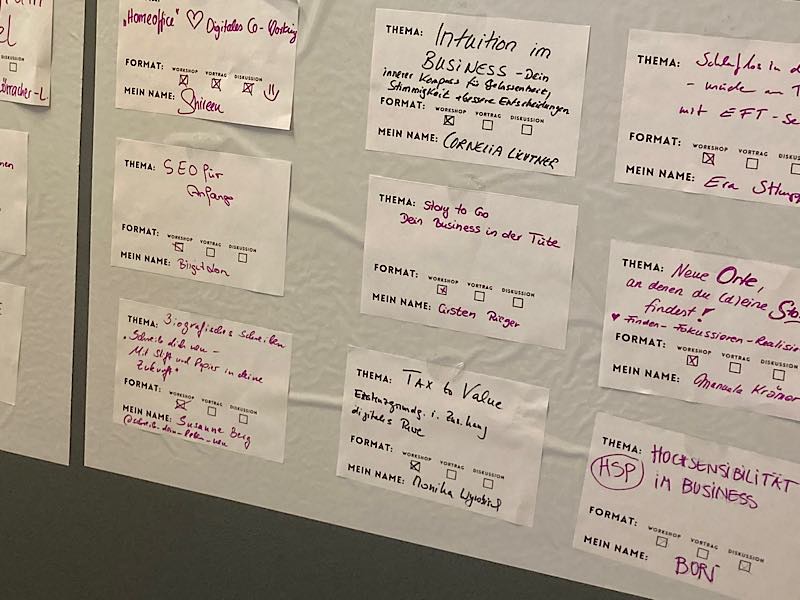 "Homeoffice" ♡ Digitales Co-Working
FORMAT: WORKSHOP VORTRAG DISKUSSION
MEIN NAME: Shireen
THEMA: SEO für
Anfänge
FORMAT: WORKSHOP VORTRAG DISKUSSION
MEIN NAME:
THEMA: Biografisches Schreiben
"Schreib dich neu -
Mit Stift und Papier in deine
Zukunft"
FORMAT: WORKSHOP VORTRAG DISKUSSION
MEIN NAME: Susanne Berg
THEMA: Intuition im
BUSINESS - Dein
innerer Kompass für Gelassenheit,
Stimmigkeit + bessere Entscheidungen
FORMAT: WORKSHOP VORTRAG DISKUSSION
MEIN NAME: CORNELIA
THEMA: Story to Go
Dein Business in der Tüte
FORMAT: WORKSHOP VORTRAG DISKUSSION
MEIN NAME: Carsten Rieger
THEMA: TAX to Value
digitales
FORMAT: WORKSHOP VORTRAG DISKUSSION
MEIN NAME: Monika
THEMA: Schlaflos in d
- müde am T
mit EFT-Se
FORMAT: WORKSHOP VORTRAG DISK
MEIN NAME: Eva
THEMA: Neue Orte,
an denen du (d)eine Sto
findest!
♥ Finden - Fokussieren - Realisie
FORMAT: WORKSHOP VORTRAG DISKUSSION
MEIN NAME: Manuela Krämer
THEMA: HOCHSENSIBILITÄT
HSP IM BUSINESS
FORMAT: WORKSHOP VORTRAG DISKUSSION
MEIN NAME: BORI